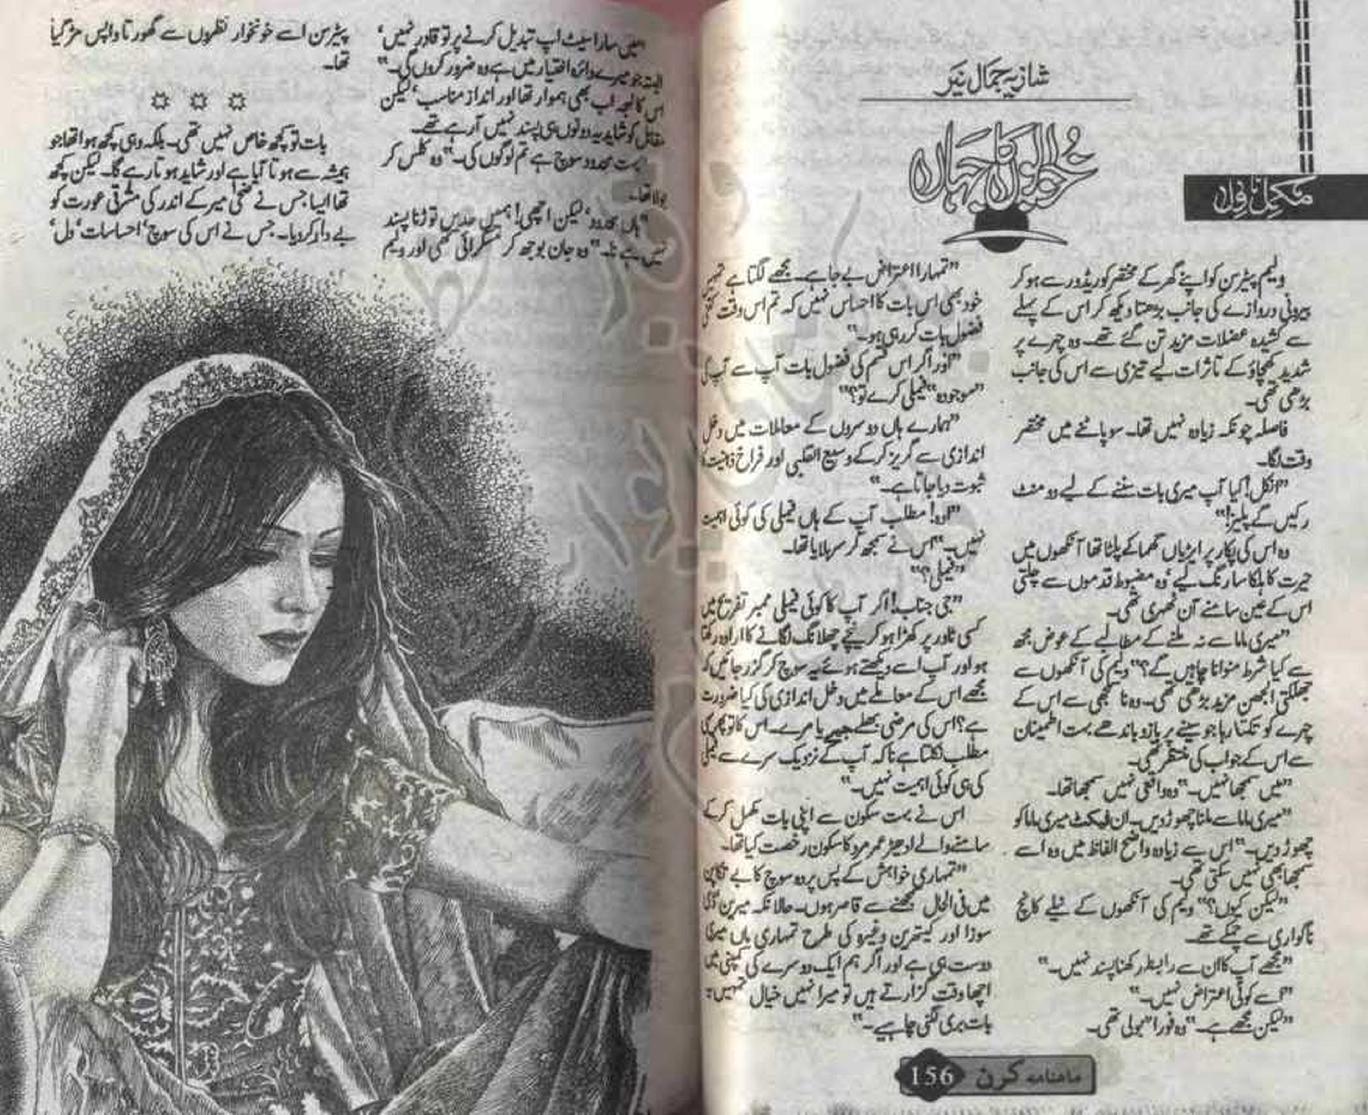 شازیہ جمال نیر
خوابوں کا جہاں
مکمل ناول
ولیم پیٹرسن کو اپنے گھر کے مختصر کوریڈور سے ہو کر
بیرونی دروازے کی جانب بڑھتا دیکھ کر اس کے پہلے
سے کشیدہ عضلات مزید تن گئے تھے۔ وہ چہرے پر
شدید کھچاؤ کے تاثرات لیے تیزی سے اس کی جانب
بڑھی تھی۔
فاصلہ چونکہ زیادہ نہیں تھا۔ سو پاٹنے میں مختصر
وقت لگا۔
"انکل! کیا آپ میری بات سننے کے لیے دو منٹ
رکیں گے پلیز!"
وہ اس کی پکار پر ایڑیاں گھما کے پلٹا تھا آنکھوں میں
حیرت کا ہلکا سا رنگ لیے، وہ مضبوط قدموں سے چلتی
اس کے عین سامنے آن ٹھہری تھی۔
"میری ماما سے نہ ملنے کے مطالبے کے عوض مجھ
سے کیا شرط منوانا چاہیں گے؟" ولیم کی آنکھوں سے
جھلکتی الجھن مزید بڑھی تھی۔ وہ ناسمجھی سے اس کے
چہرے کو تکتا رہا جو سینے پر بازو باندھے بہت اطمینان
سے اس کے جواب کی منتظر تھی۔
"میں سمجھا نہیں۔" وہ واقعی نہیں سمجھا تھا۔
"میری ماما سے ملنا چھوڑ دیں۔ ان فیکٹ میری ماما کو
چھوڑ دیں۔" اس سے زیادہ واضح الفاظ میں وہ اسے
سمجھا بھی نہیں سکتی تھی۔
"لیکن کیوں؟" ولیم کی آنکھوں کے نیلے کانچ
ناگواری سے چمکے تھے۔
"مجھے آپ کا ان سے رابطہ رکھنا پسند نہیں۔"
"اسے کوئی اعتراض نہیں۔"
"لیکن مجھے ہے۔" وہ فورا" بولی تھی۔
"تمہارا اعتراض بے جا ہے۔ مجھے لگتا ہے تمہیں
خود بھی اس بات کا احساس نہیں کہ تم اس وقت کتنی
فضول بات کر رہی ہو۔"
"اور اگر اس قسم کی فضول بات آپ سے آپ کی
"موجودہ" فیملی کرے تو؟"
"ہمارے ہاں دوسروں کے معاملات میں دخل
اندازی سے گریز کر کے وسیع القلبی اور فراخ ذہنیت کا
ثبوت دیا جاتا ہے۔"
"اوہ! مطلب آپ کے ہاں فیملی کی کوئی اہمیت
نہیں۔" اس نے سمجھ کر سر ہلایا تھا۔
"فیملی؟"
"جی جناب! اگر آپ کا کوئی فیملی ممبر تفریح میں
کسی ٹاور پر کھڑا ہو کر نیچے چھلانگ لگانے کا ارادہ رکھتا
ہو اور آپ اسے دیکھتے ہوئے یہ سوچ کر گزر جائیں کہ
مجھے اس کے معاملے میں دخل اندازی کی کیا ضرورت
ہے؟ اس کی مرضی بھلے جیے یا مرے۔ اس کا تو پھر یہی
مطلب نکلتا ہے نا کہ آپ کے نزدیک سرے سے فیملی
کی ہی کوئی اہمیت نہیں۔"
اس نے بہت سکون سے اپنی بات مکمل کر کے
سامنے والے ادھیڑ عمر مرد کا سکون رخصت کیا تھا۔
"تمہاری خواہش کے پس پردہ سوچ کا بے تکا پن
میں فی الحال سمجھنے سے قاصر ہوں۔ حالانکہ میرین
سوزا اور کیتھرین وغیرہ کی طرح تمہاری ماں میری
دوست ہی ہے اور اگر ہم ایک دوسرے کی کمپنی میں
اچھا وقت گزارتے ہیں تو میرا نہیں خیال تمہیں یہ
بات بری لگنی چاہیے۔"
156 ماہنامہ کرن
"میں سارا سیٹ اپ تبدیل کرنے پر تو قادر نہیں،
البتہ جو میرے دائرہ اختیار میں ہے وہ ضرور کروں گی۔"
اس کا لہجہ اب بھی ہموار تھا اور انداز مناسب، لیکن
مقابل کو شاید یہ دونوں ہی پسند نہیں آ رہے تھے۔
"بہت محدود سوچ ہے تم لوگوں کی۔" وہ کلس کر
بولا تھا۔
"ہاں محدود، لیکن اچھی! ہمیں حدیں توڑنا پسند
نہیں ہے نا۔" وہ جان بوجھ کر مسکرائی تھی اور ولیم
پیٹرسن اسے خونخوار نظروں سے گھورتا واپس مڑ گیا
تھا۔
بات تو کچھ خاص نہیں تھی۔ بلکہ وہی کچھ ہوا تھا جو
ہمیشہ سے ہوتا آیا ہے اور شاید ہوتا رہے گا۔ لیکن کچھ
تھا ایسا جس نے میر کے اندر کی مشرقی عورت کو
بے دار کر دیا۔ جس نے اس کی سوچ، احساسات، دل،